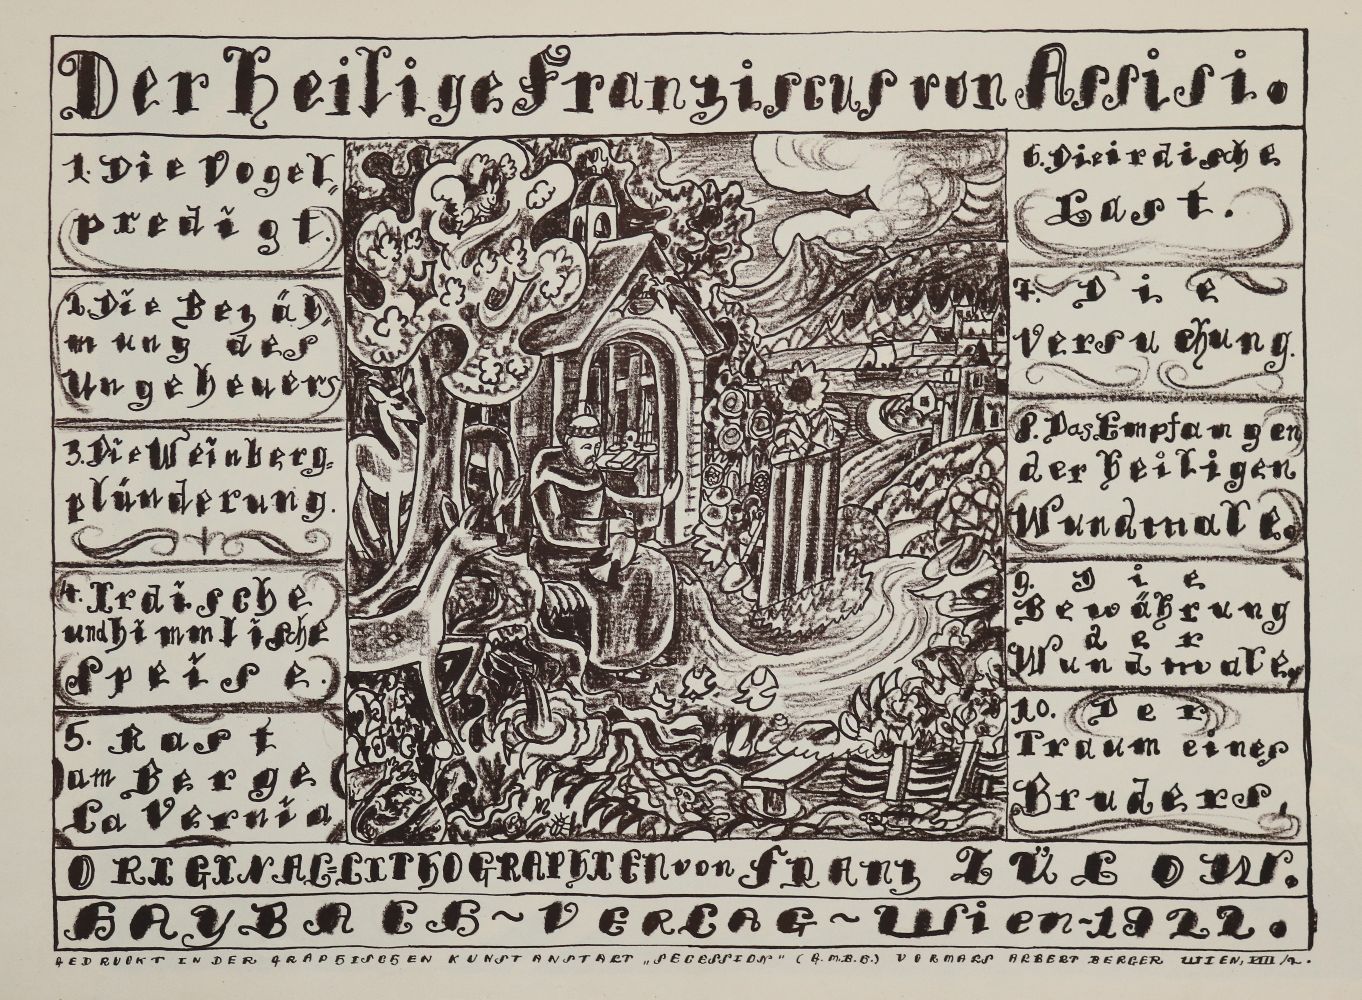 Der heilige Franziscus von Assisi.
1. Die Vogel-
predigt.
2. Die Bezäh-
mung des
Ungeheuers
3. Die Weinberg-
plünderung.
4. Irdische
und himmlische
Speise.
5. Rast
am Berge
La Vernia
6. Die irdische
Last.
7. Die
Versuchung.
8. Das Empfangen
der heiligen
Wundmale.
9. Die
Bewährung
der
Wundmale,
10. Der
Traum eines
Bruders,
ORIGINAL-LITHOGRAPHIEN von FRANZ ZÜLOW.
HAYBACH ~ VERLAG ~ Wien-1922.
GEDRUCKT IN DER GRAPHISCHEN KUNSTANSTALT „SECESSION" (G.M.B.H.) VORMALS ALBERT BERGER WIEN, VIII/2.